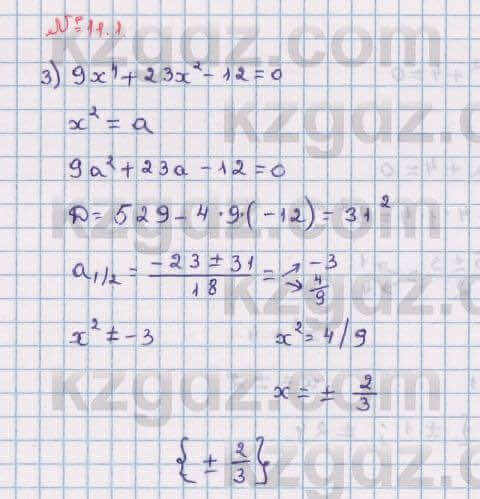 № 11.1
3) 9x⁴ + 23x² - 12 = 0
x² = a
9a² + 23a - 12 = 0
D = 529 - 4·9·(-12) = 31²
a₁/₂ = (-23 ± 31)/18 = → -3 → 4/9
x² ≠ -3 x² = 4/9
x = ± 2/3
{± 2/3}
kzgdz.com